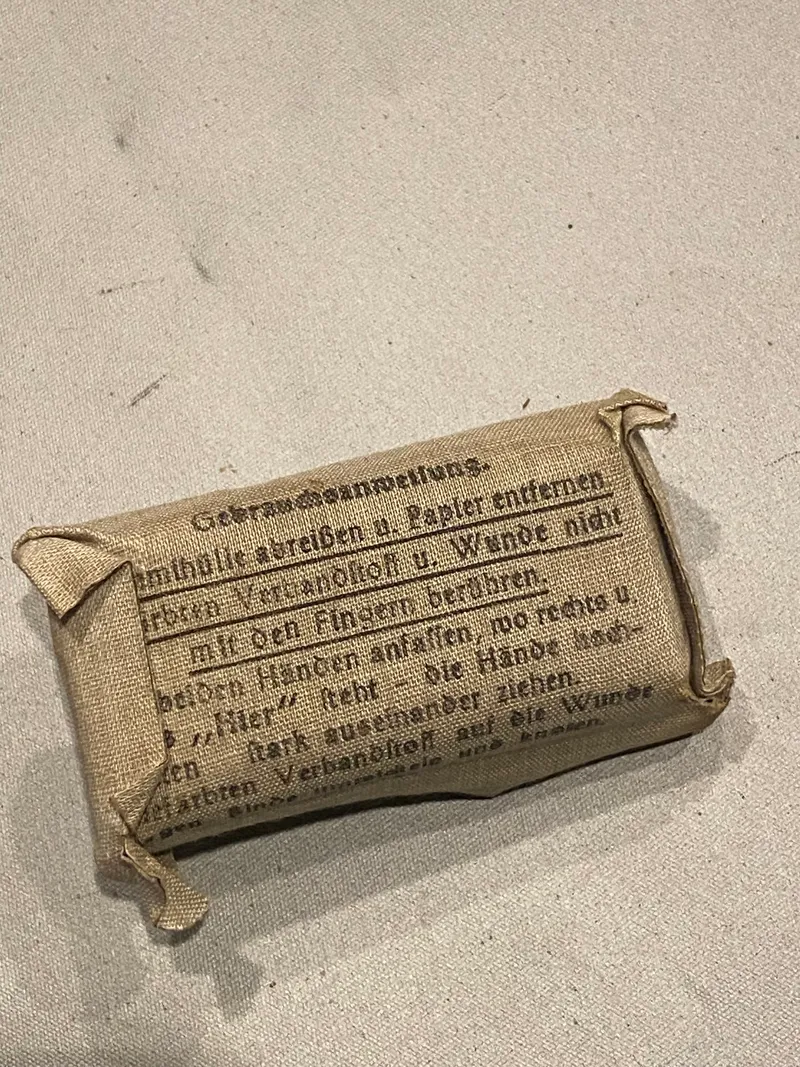 Gebrauchsanweisung.
amthülle abreißen u. Papier entfernen
ärbten Verbandstoff u. Wunde nicht
mit den Fingern berühren.
beiden Händen anfassen, wo rechts u.
s „Hier“ steht – die Hände hoch-
ten stark auseinander ziehen.
gefärbten Verbandstoff auf die Wunde
gen Binde umwickeln und knoten.